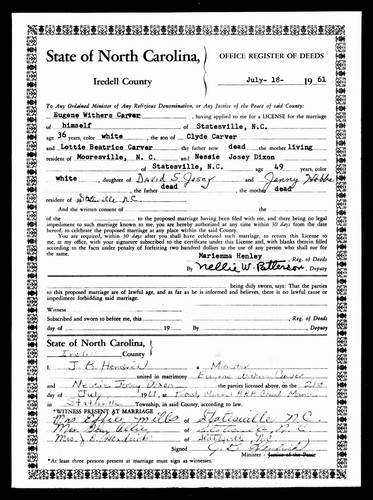 State of North Carolina,
Iredell County
OFFICE REGISTER OF DEEDS
July- 18- 1961
To Any Ordained Minister of Any Religious Denomination, or Any Justice of the Peace of said County:
Eugene Withers Carver , having applied to me for a LICENSE for the marriage
of himself of Statesville, N.C.
age 36 years, color white , the son of Clyde Carver
and Lottie Beatrice Carver the father now dead , the mother living
resident of Mooresville, N. C. and Nessie Josey Dixon
of Statesville, N.C. age 49 years, color
white , daughter of David S. Josey and Jenny Hobbs
, the father dead , the mother dead
resident of Statesville N.C.
And the written consent of the
of the to the proposed marriage having been filed with me, and there being no legal
impediment to such marriage known to me, you are hereby authorized, at any time within 30 days from the date
hereof, to celebrate the proposed marriage at any place within the said County.
You are required, within 30 days after you shall have celebrated such marriage, to return this License to
me, at my office, with your signature subscribed to the certificate under this License, and with blanks therein filled
according to the facts under penalty of forfeiting two hundred dollars to the use of any person who shall sue for
the same.
Marienna Henley , Reg. of Deeds
By Nellie W. Patterson , Deputy
being duly sworn, says: That the parties
to this proposed marriage are of lawful age, and as far as he is informed and believes, there is no lawful cause or
impediment forbidding said marriage.
Witness
Subscribed and sworn to before me, this , Reg. of Deeds
day of 19 By , Deputy
State of North Carolina,
Iredell County
I, J. B. Hendrick , a Minister
united in matrimony Eugene Withers Carver
and Nessie Josey Dixon , the parties licensed above, on the 21st
day of July 1961, at Front
in Statesville Township, in said County, according to law.
*WITNESS PRESENT AT MARRIAGE
Mrs Mills of Statesville N.C.
of Statesville N.C.
Mrs. J. B. Hendrick of Statesville N.C.
Signed J. B. Hendrick
Minister - Justice of the Peace.
*At least three persons present at marriage must sign as witnesses.